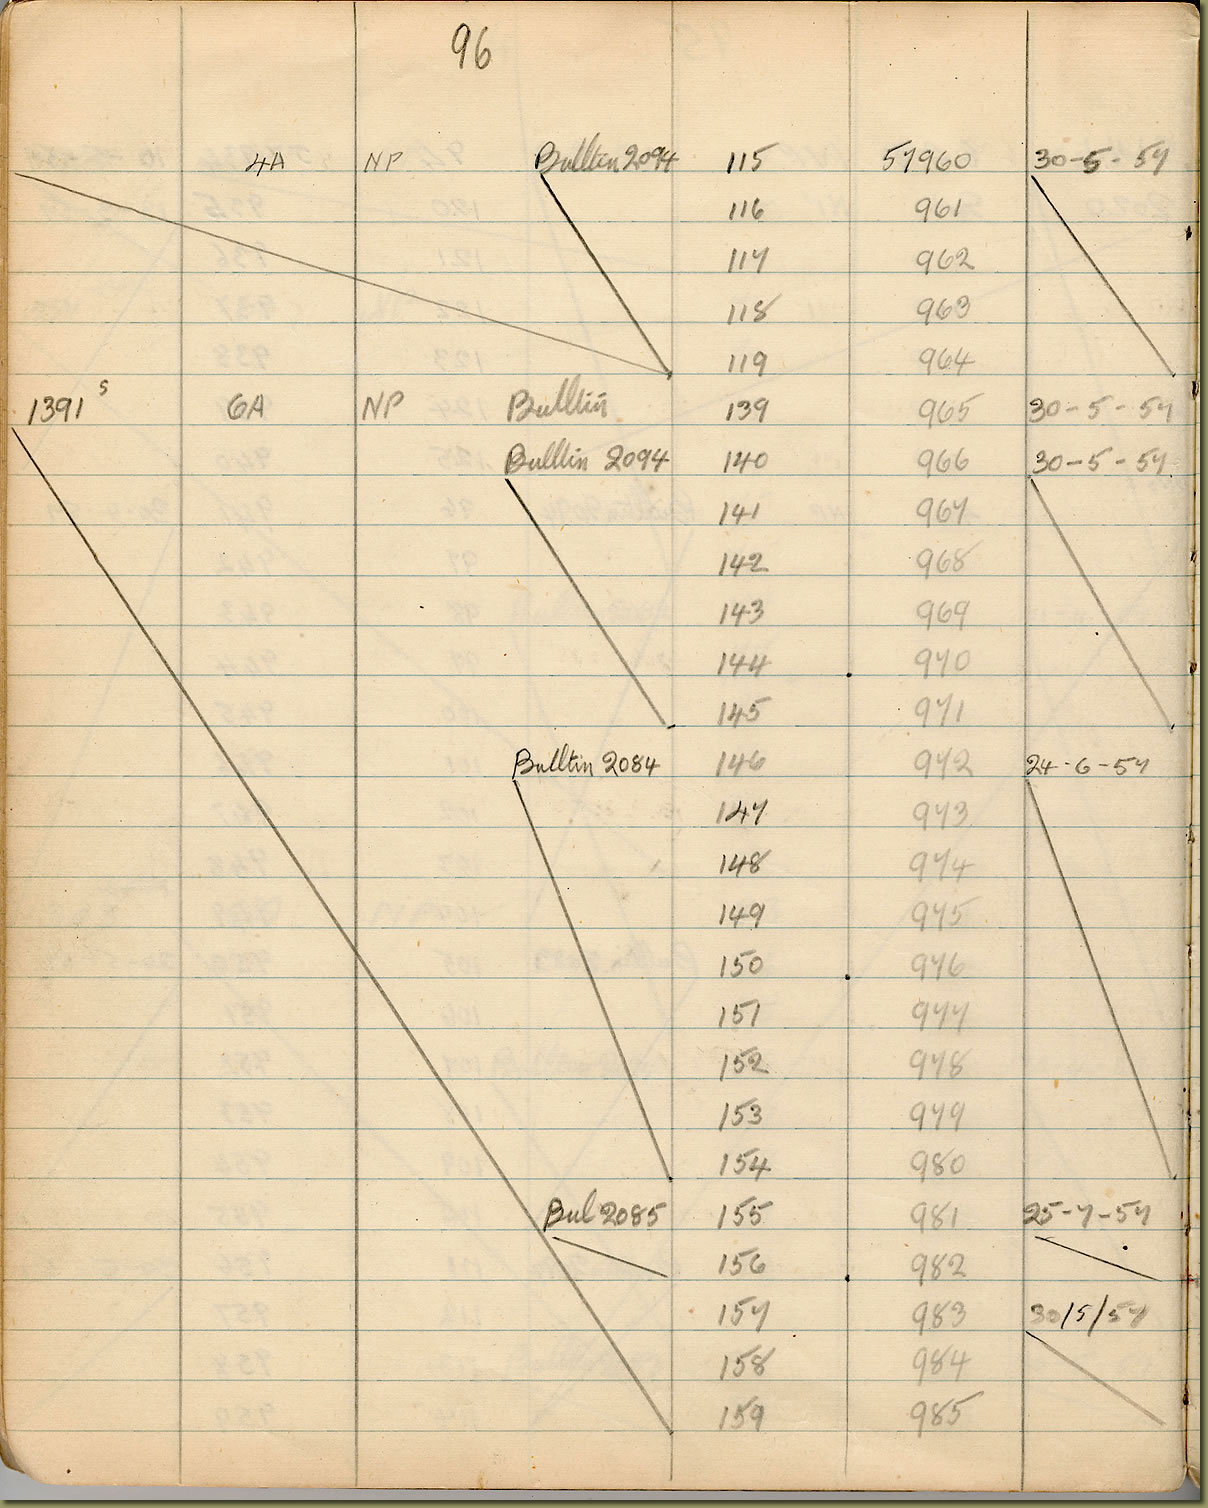 96
4A NP Bulltin 2094 115 57960 30-5-57
116 961
117 962
118 963
119 964
1391 s 6A NP Bulltin 139 965 30-5-57
Bulltin 2094 140 966 30-5-57
141 967
142 968
143 969
144 970
145 971
Bulltin 2084 146 972 24-6-57
147 973
148 974
149 975
150 976
151 977
152 978
153 979
154 980
Bul 2085 155 981 25-7-57
156 982
157 983 30/5/57
158 984
159 985